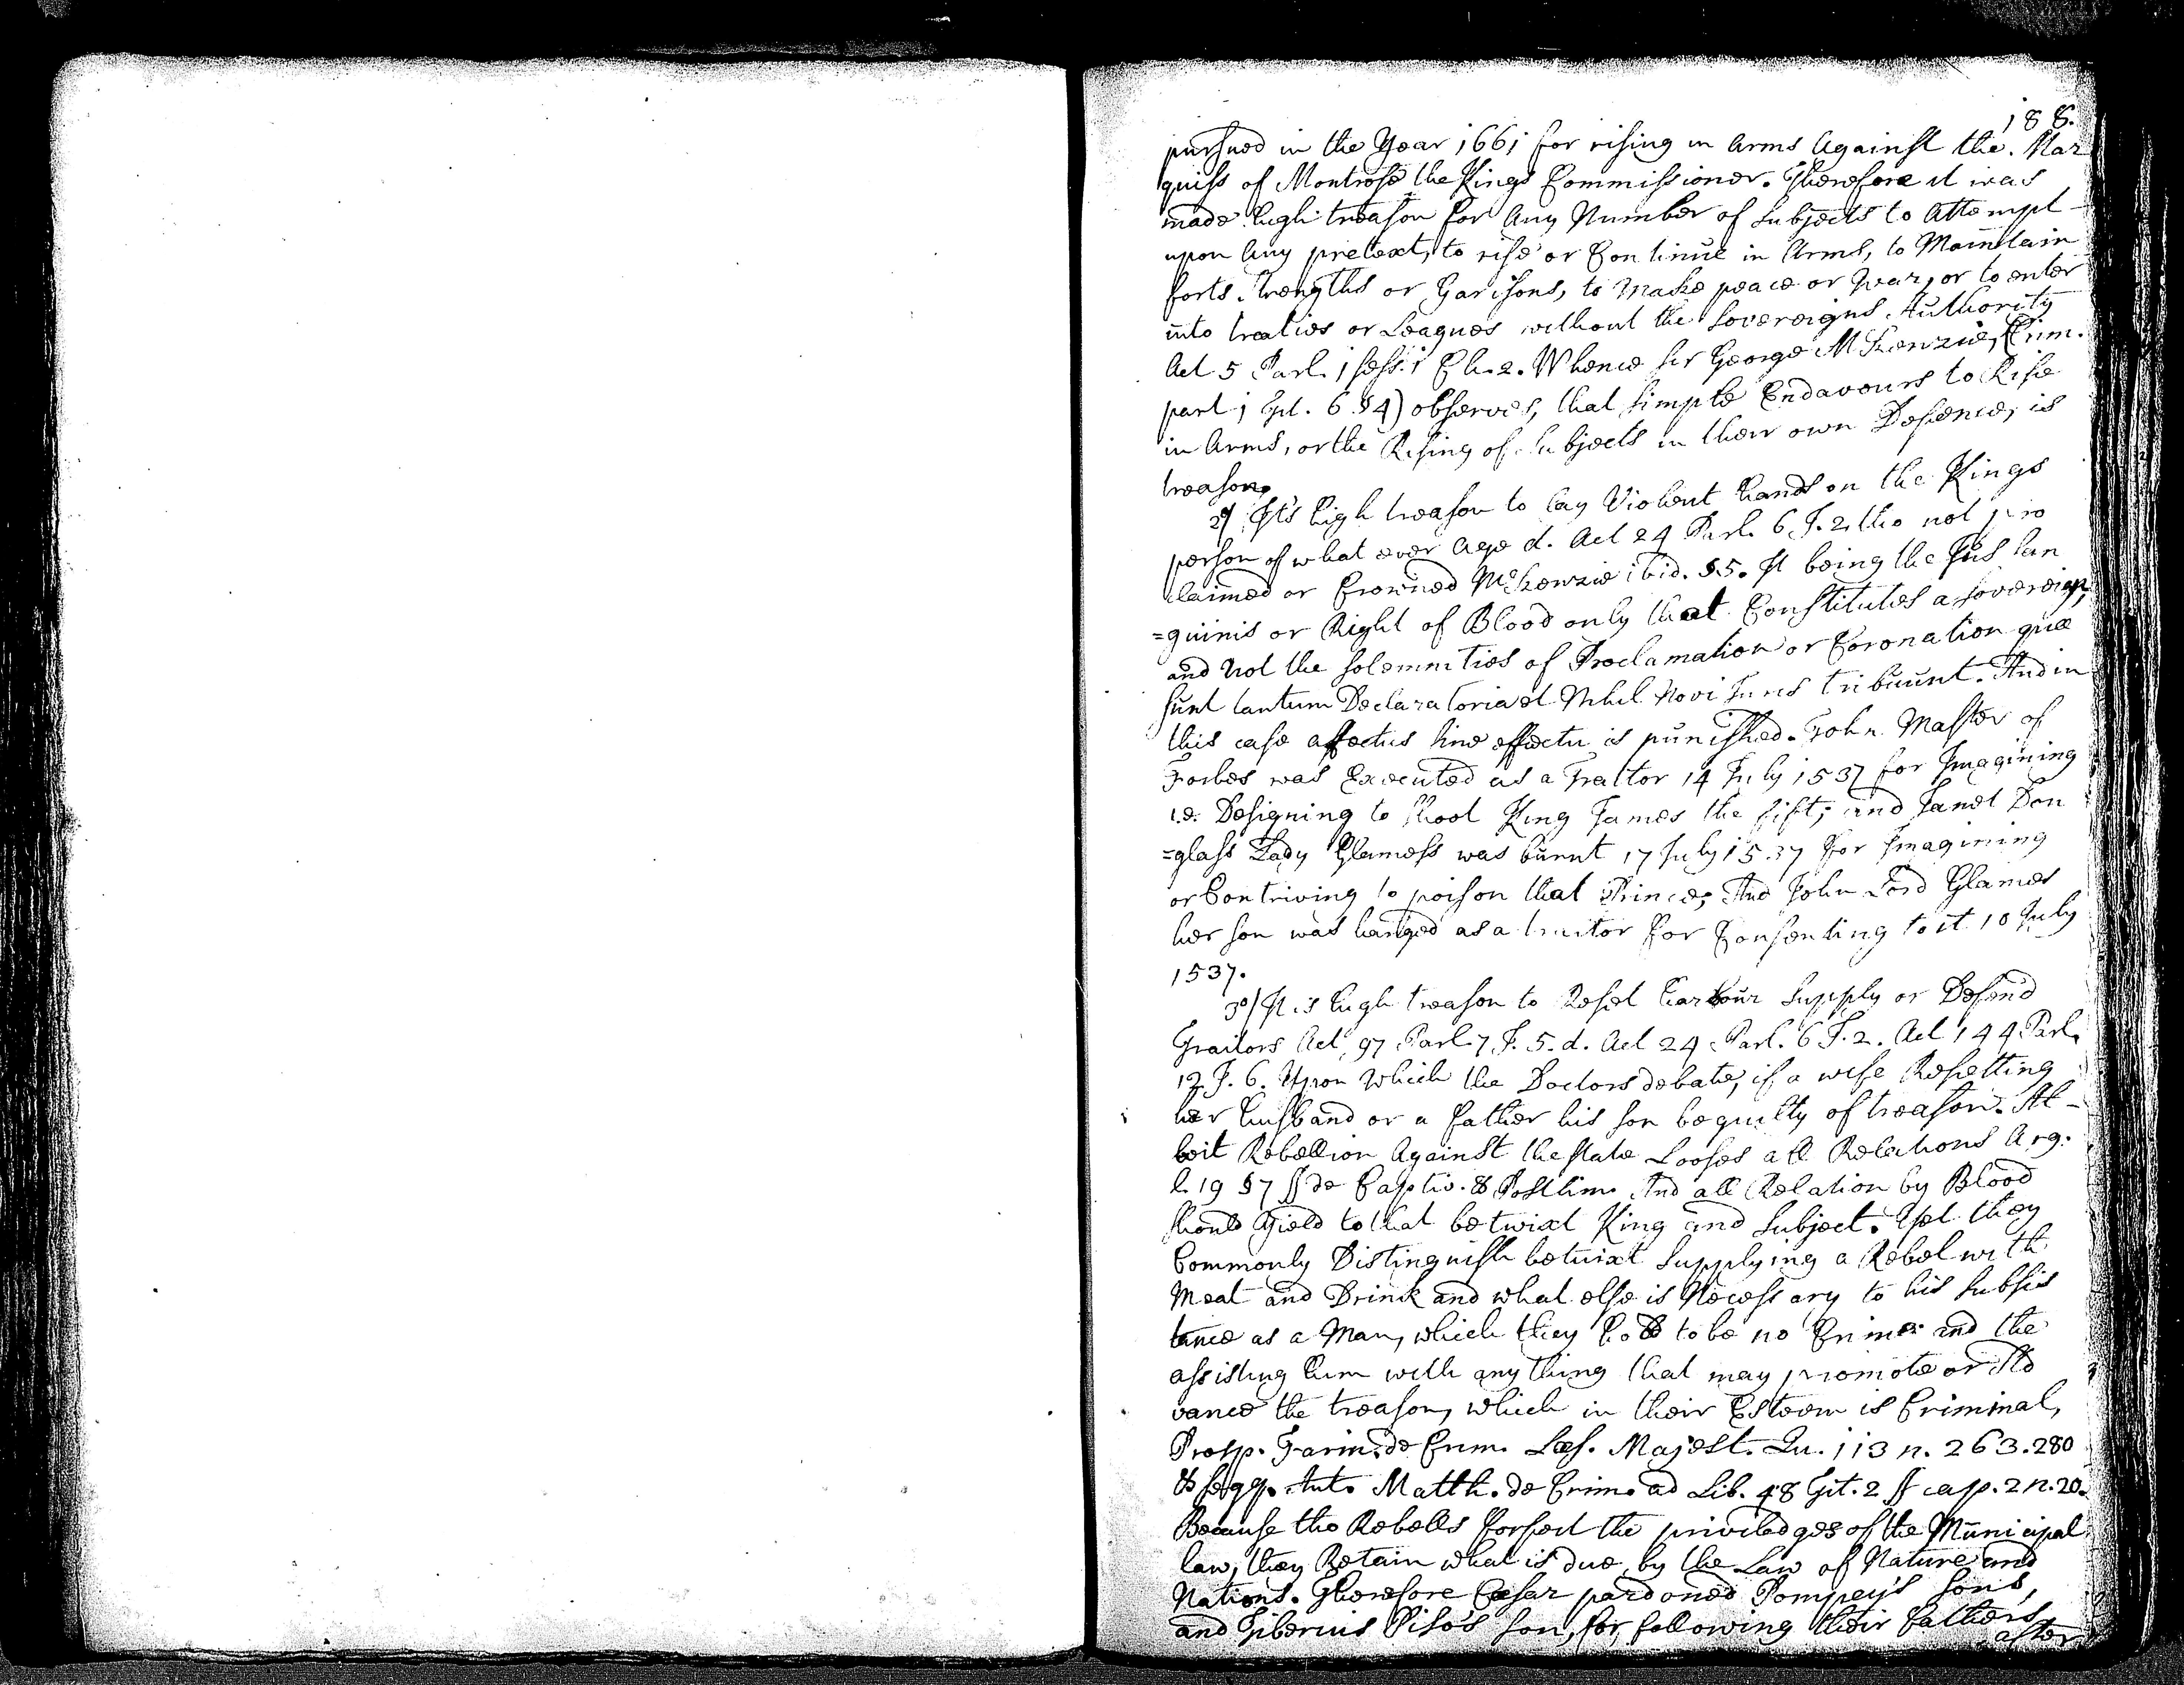 188.
pursued in the Year 1661 for rising in Arms Against the Mar
quiss of Montrose the Kings Commissioner. Therefore it was
made high treason for Any Number of Subjects to Attempt
upon Any pretext, to rise or Continue in Arms, to Maintain
forts. Strengths or Garisons, to Make peace or War, or to enter
into treaties or Leagues without the Sovereigns Authority
Act 5 Parl. 1 sess. 1 Ch. 2. Whence Sir George McKenzie, Crim.
part 1 Tit. 6 § 4) observes, that simple Endavours to Rise
in Arms, or the Rising of Subjects in their own Defence, is
treason.
2º/ It's high treason to lay Violent hands on the Kings
person of what ever Age d. Act 24 Parl. 6 J. 2. tho not pro
claimed or Crowned McKenzie ibid. §5. It being the Jus San
=guinis or Right of Blood only that Constitutes a Sovereign,
and Not the solemnities of Proclamation or Coronation quæ
sunt tantum Declaratoria et Nihil Novi Juris tribuunt. And in
this case affectus sine effectu is punished. John Master of
Forbes was Executed as a Traitor 14 July 1537 for Imagining
i.e. Designing to shoot King James the fift; and Janet Dou
=glass Lady Glamess was burnt 17 July 1537 for Imagining
or Contriving to poison that Prince; And John Lord Glames
her son was hanged as a traitor for Consenting to it 10 July
1537.
3º/ It is high treason to Reset harbour Supply or Defend
Traitors Act 97 Parl. 7 J. 5. d. Act 24 Parl. 6 J. 2. Act 144 Parl.
12 J. 6. Upon Which the Doctors debate, if a wife Resetting
her husband or a father his son be guilty of treason. Al-
beit Rebellion Against the state Looses all Relations Arg.
l. 19 §7 ff de Captiv. & Postlim. And all Relation by Blood
should Yield to that betwixt King and Subject. Yet they
Commonly Distinguish betwixt Supplying a Rebel with
Meat and Drink and what else is Necessary to his Subsis
tance as a Man, which they hold to be no Crime: and the
assisting him with any thing that may promote or Ad
vance the treason, which in their Esteem is Criminal,
Prosp. Farin. de Crim. Læs. Majest. Qu. 113 n. 263. 280
& seqq. Ant. Matth. de Crim. ad Lib. 48 Tit. 2 ff cap. 2 n. 20.
Because tho Rebells forfeit the priviledges of the Municipal
law, they Retain what is due by the Law of Nature and
Nations. Therefore Cæsar pardoned Pompey's sons,
and Tiberius Piso's son, for following their fathers,
after